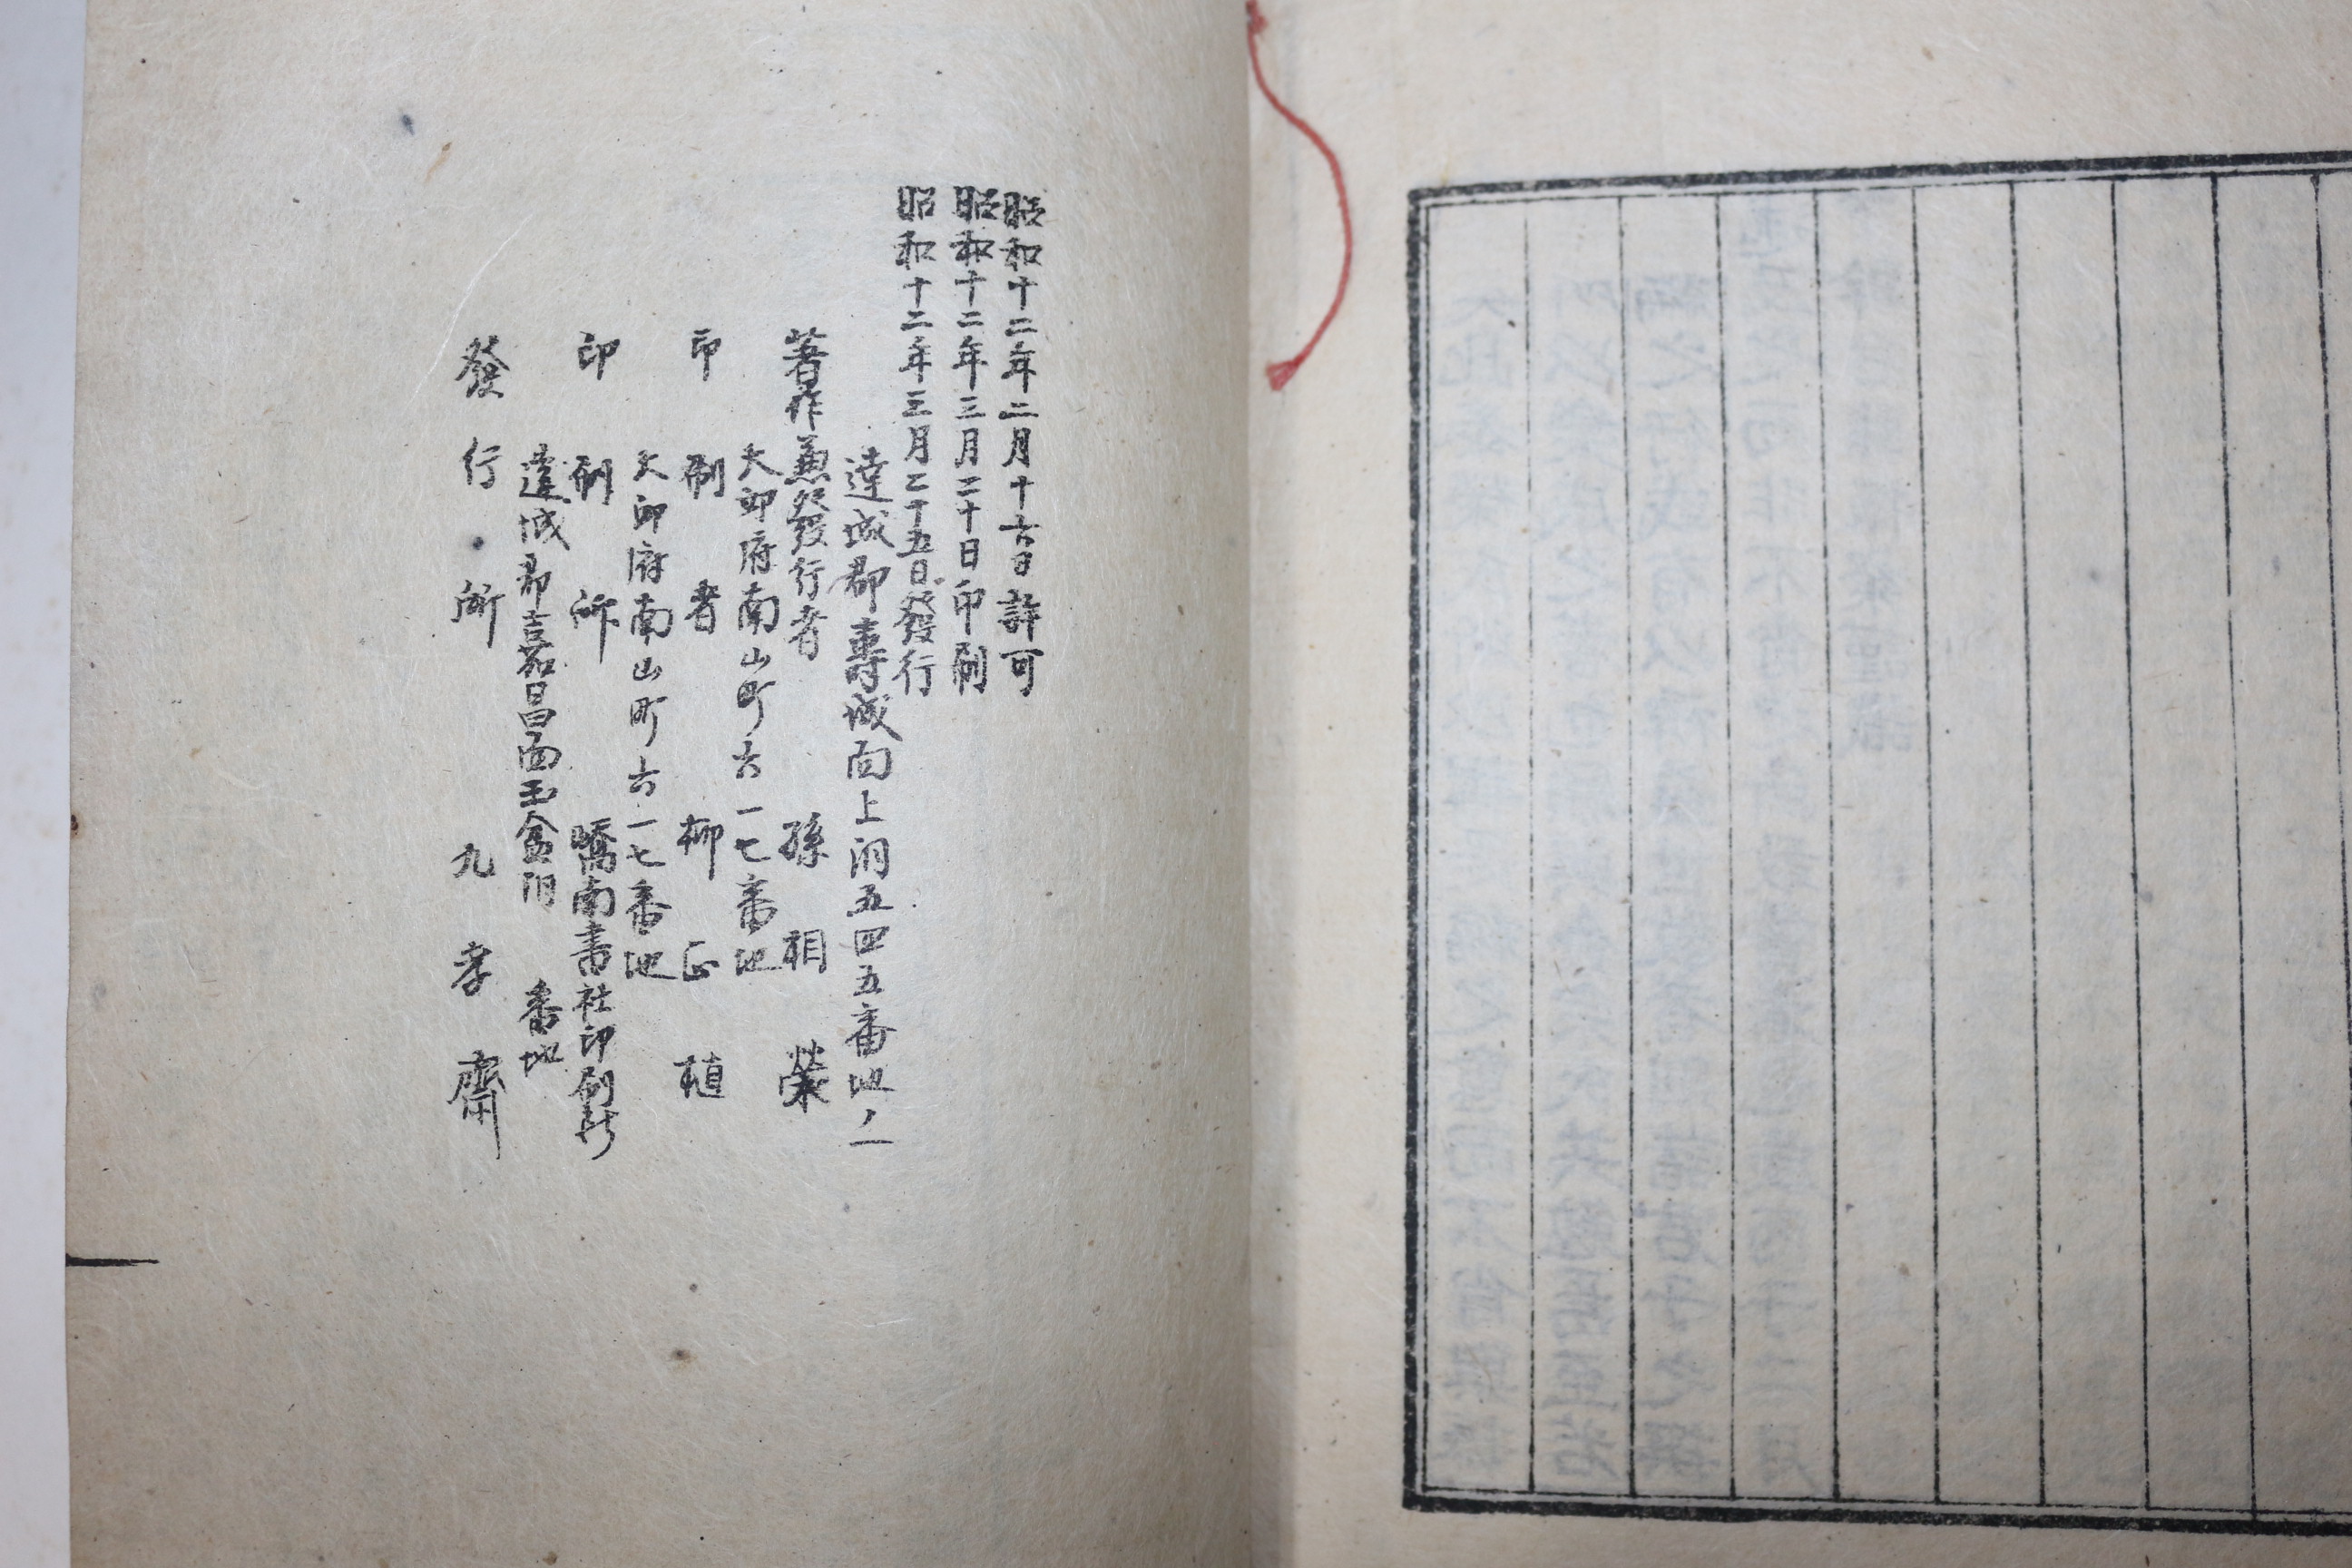 昭和十二年二月十六日許可
昭和十二年三月二十日印刷
昭和十二年三月二十五日發行
達城郡壽城面上洞五四五番地ノ一
著作兼發行者 孫相榮
大邱府南山町六一七番地
印刷者 柳正植
大邱府南山町六一七番地
印刷所 嶠南書社印刷所
達城郡嘉昌面玉金洞 番地
發行所 九孝齋